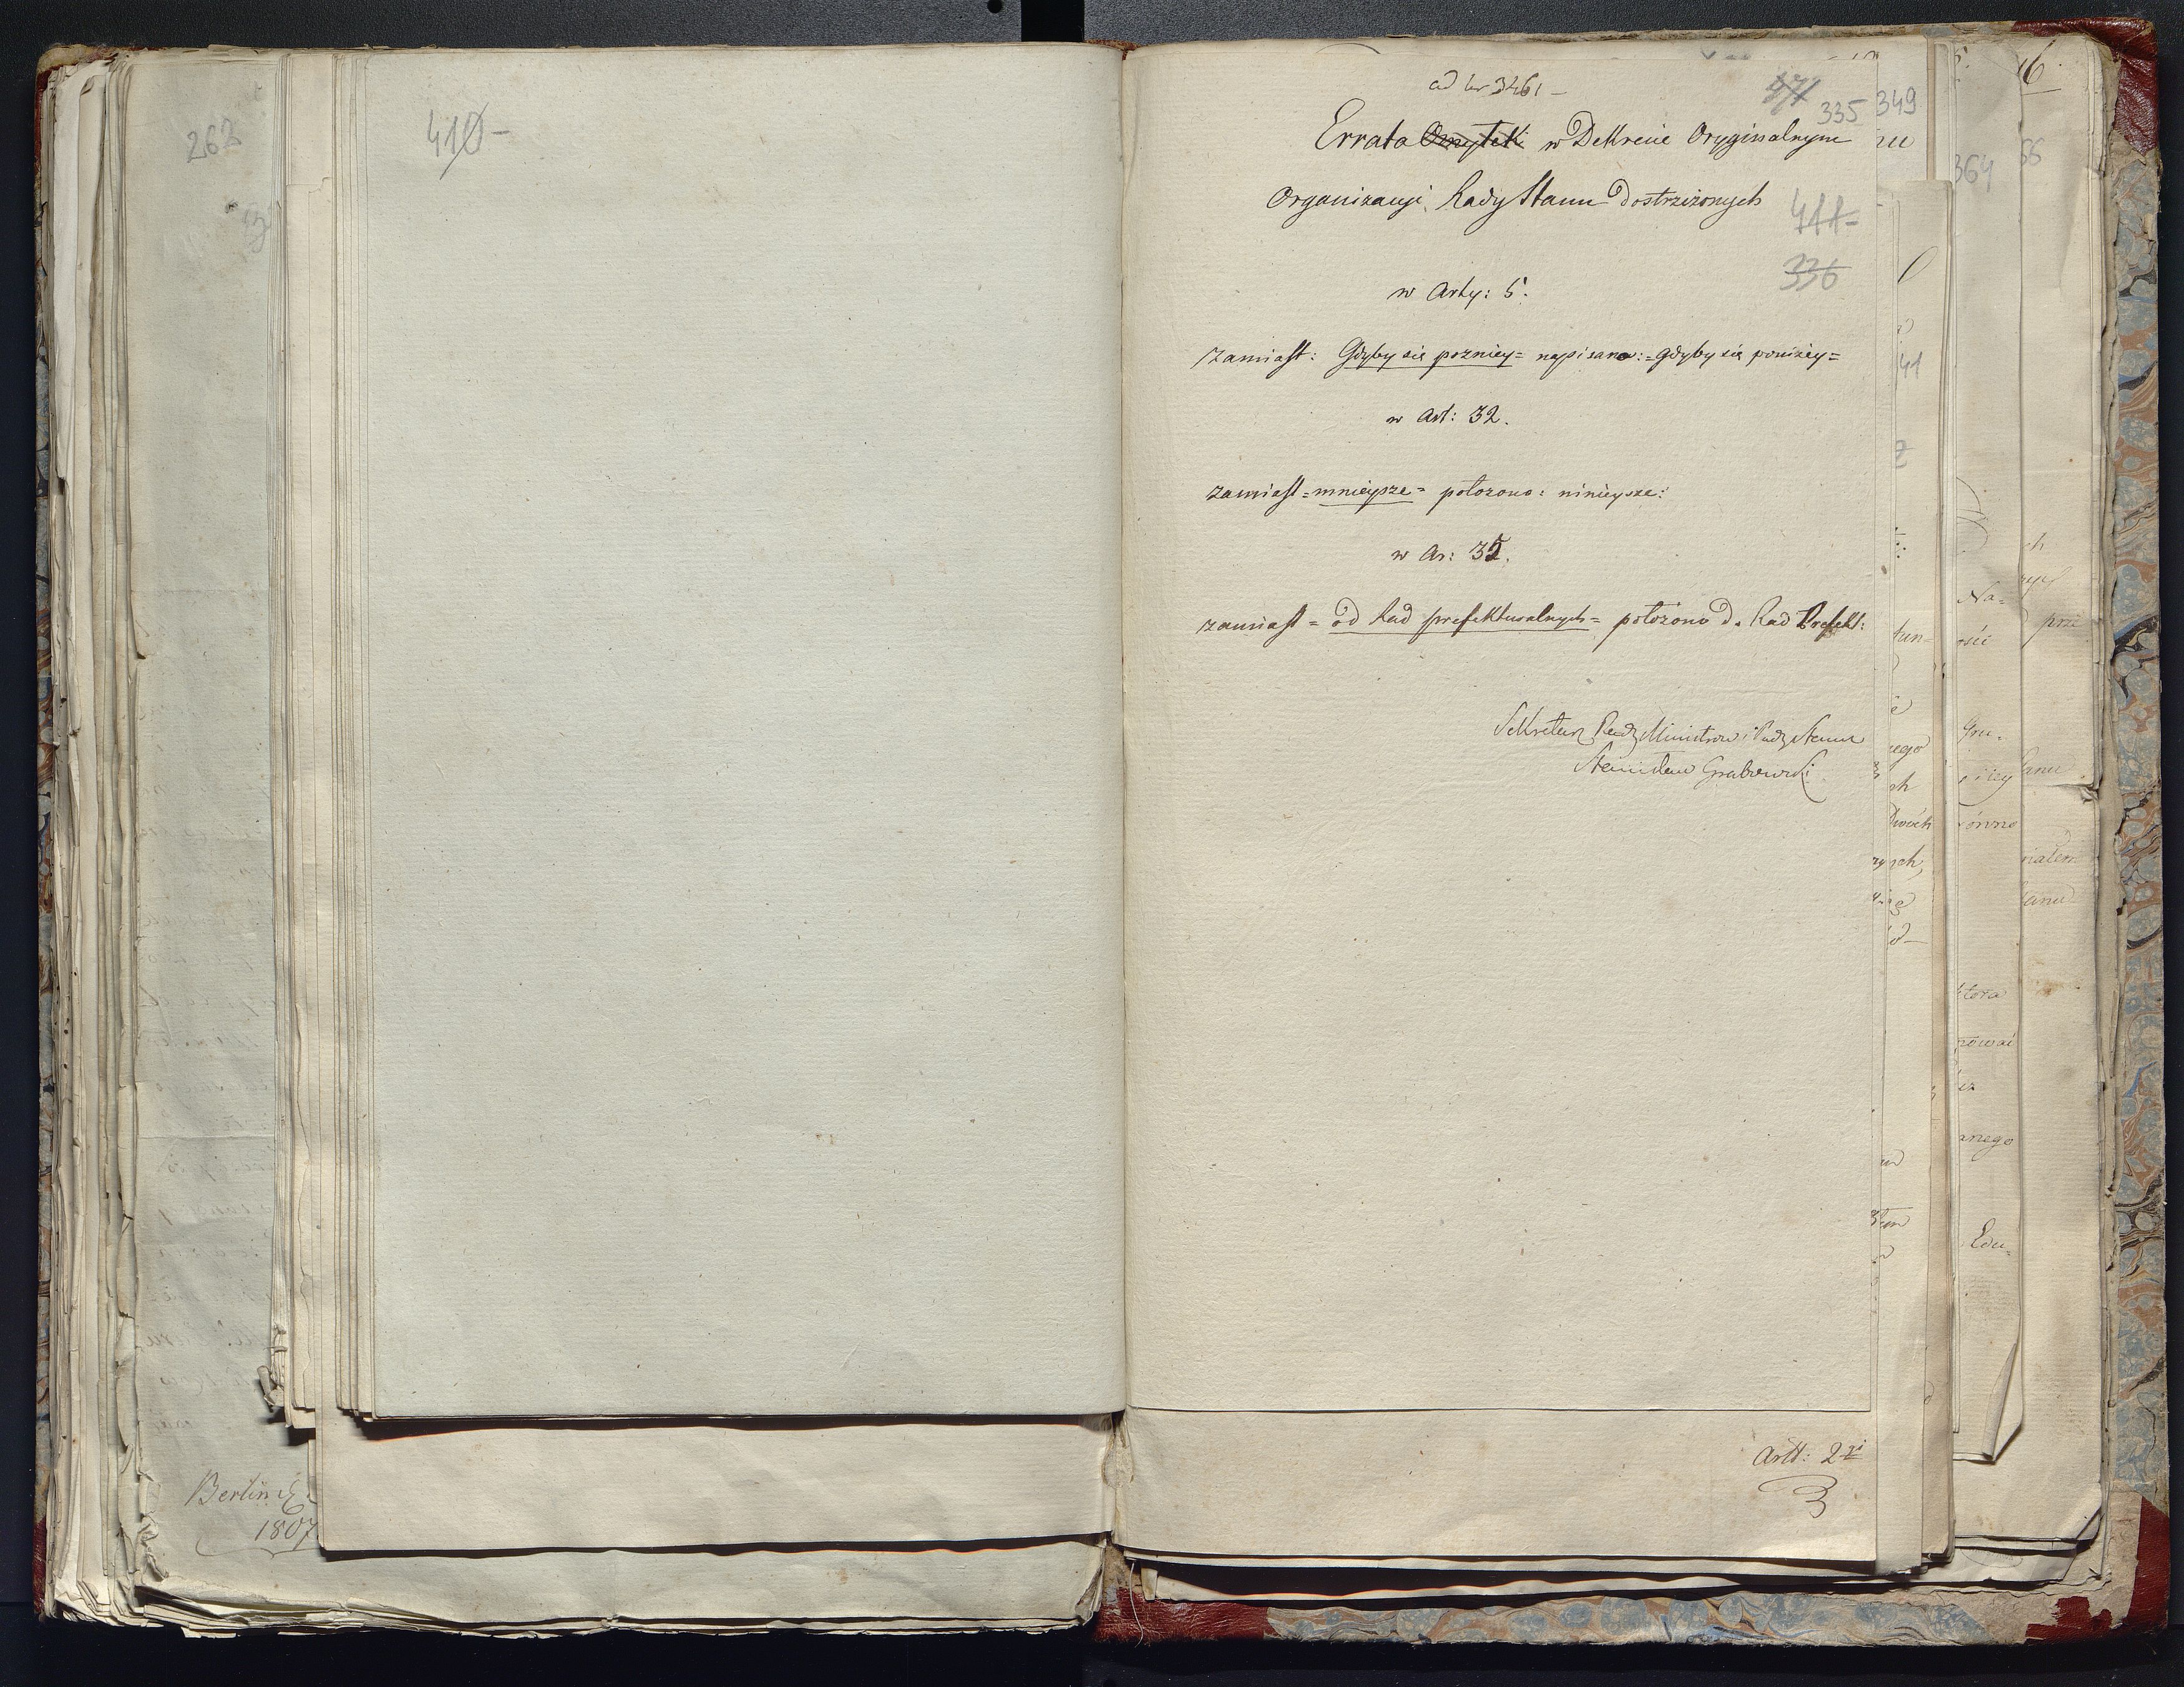 262
410-
Berlin
1807
ad Nr 3461 -
471
335
349
Errata Omyłek w Dekrecie Oryginalnym
Organizacyi Rady Stanu Dostrzeżonych
411-
336
w Arty: 5.
zamiast: Gdyby się pozniey = napisano: = gdyby się poniżey =
w Art: 32.
zamiast = mnieysze = położono: ninieysze:
w Ar: 35.
zamiast = od Rad prefekturalnych = położono do Rad Prefekt:
Sekretarz Rady Ministrów i Rady Stanu
Stanisław Grabowski
364
41
Na=
przi
ego
ch
ktora
nego
Edu=
Artt: 2